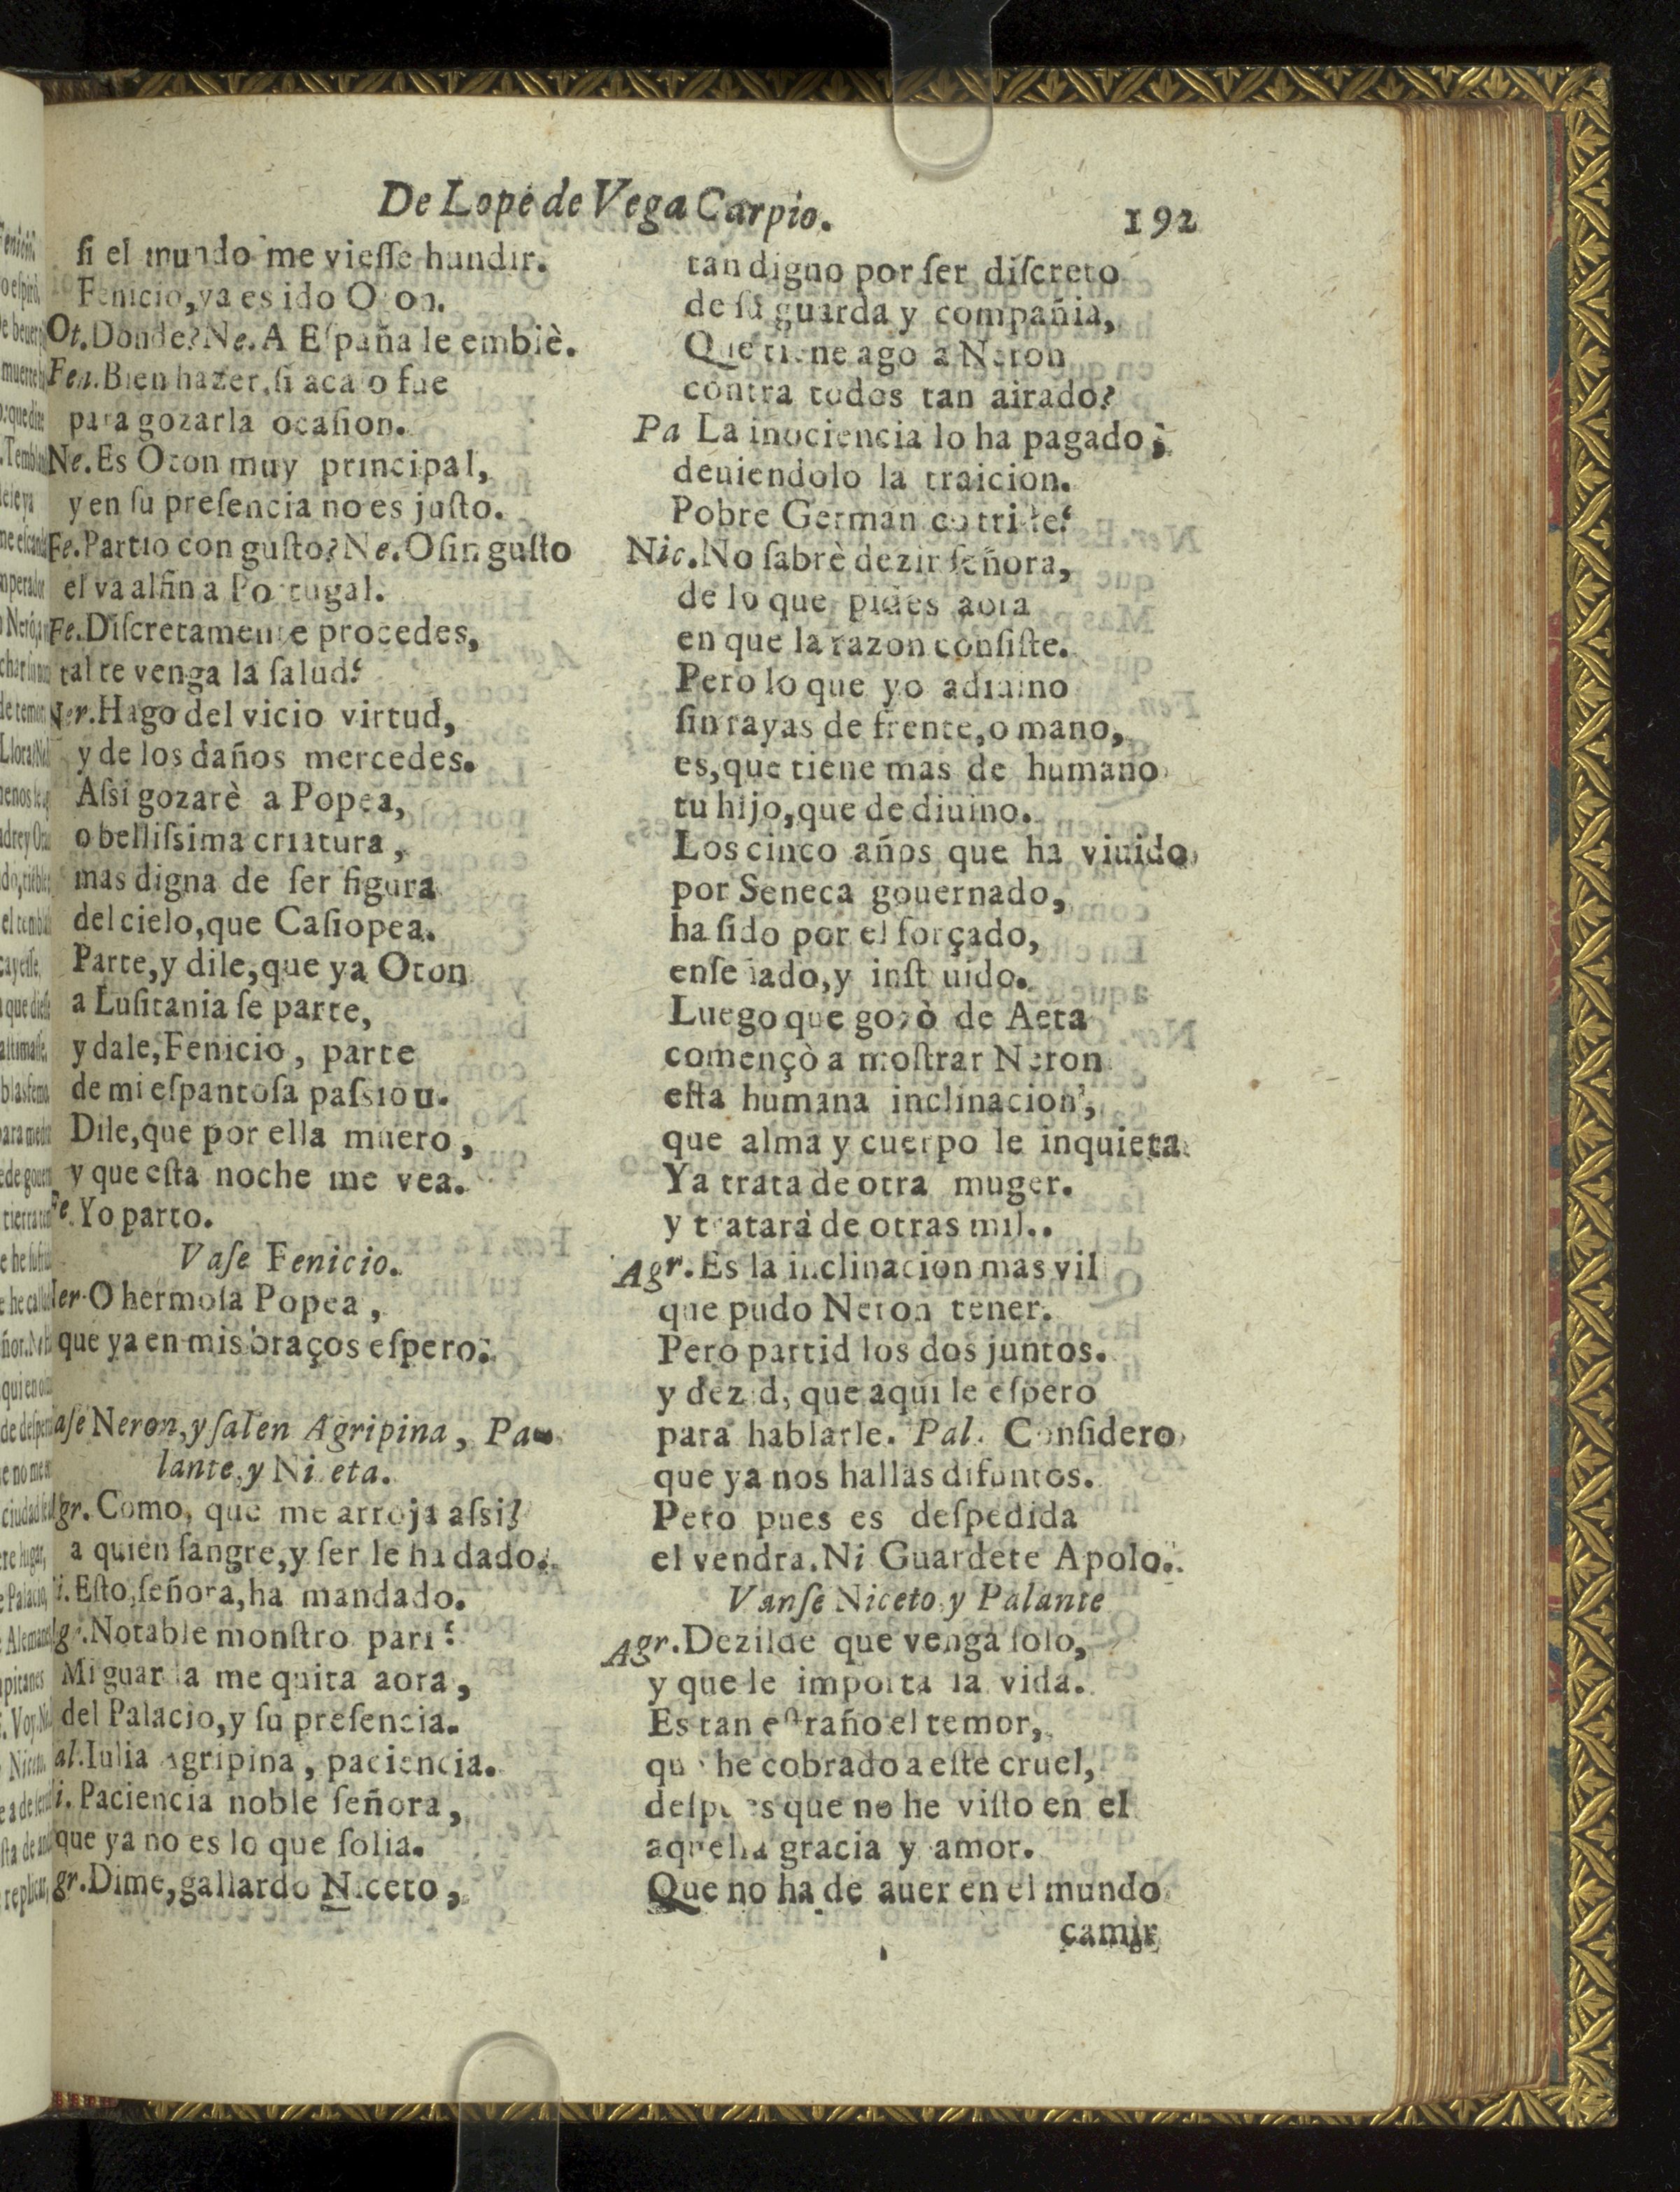 De Lope de Vega Carpio. 192
si el mundo me viesse hundir.
Fenicio, ya es ido Oton.
Ot. Donde? Ne. A España le embiè.
Fen. Bien hazer, si acaso fue
para gozar la ocasion.
Ne. Es Oton muy principal,
y en su presencia no es justo.
Fe. Partio con gusto? Ne. O sin gusto
el va al fin a Portugal.
Fe. Discretamente procedes,
tal te venga la salud.
Ner. Hago del vicio virtud,
y de los daños mercedes.
Assi gozarè a Popea,
o bellissima criatura,
mas digna de ser figura
del cielo, que Casiopea.
Parte, y dile, que ya Oton
a Lusitania se parte,
y dale, Fenicio, parte
de mi espantosa passiou.
Dile, que por ella muero,
y que esta noche me vea.
Fe. Yo parto.
Vase Fenicio.
Ner. O hermosa Popea,
que ya en mis braços espero.
Vase Neron, y salen Agripina, Pa-
lante, y Niceta.
Agr. Como, que me arroja assi?
a quien sangre, y ser le ha dado.
Ni. Esto, señora, ha mandado.
Agr. Notable monstro pari!
Mi guarda me quita aora,
del Palacio, y su presencia.
Pal. Iulia Agripina, paciencia.
Ni. Paciencia noble señora,
que ya no es lo que solia.
Agr. Dime, gallardo Niceto,
tan digno por ser discreto
de su guarda y compañia,
Que tiene ago a Neron
contra todos tan airado?
Pa La inociencia lo ha pagado;
deuiendolo la traicion.
Pobre German co triste!
Nic. No sabrè dezir señora,
de lo que pides aora
en que la razon consiste.
Pero lo que yo adiuino
sin rayas de frente, o mano,
es, que tiene mas de humano
tu hijo, que de diuino.
Los cinco años que ha viuido
por Seneca gouernado,
ha sido por el forçado,
enseñado, y instruido.
Luego que gozò de Aeta
començò a mostrar Neron
esta humana inclinacion,
que alma y cuerpo le inquieta.
Ya trata de otra muger.
y tratará de otras mil..
Agr. Es la inclinacion mas vil
que pudo Neron tener.
Pero partid los dos juntos.
y dezid, que aqui le espero
para hablarle. Pal. Considero
que ya nos hallas difuntos.
Pero pues es despedida
el vendra. Ni Guardete Apolo.
Vanse Niceto y Palante
Agr. Dezilde que venga solo,
y que le importa la vida.
Es tan estraño el temor,
que he cobrado a este cruel,
despues que no he visto en el
aquella gracia y amor.
Que no ha de auer en el mundo
camir